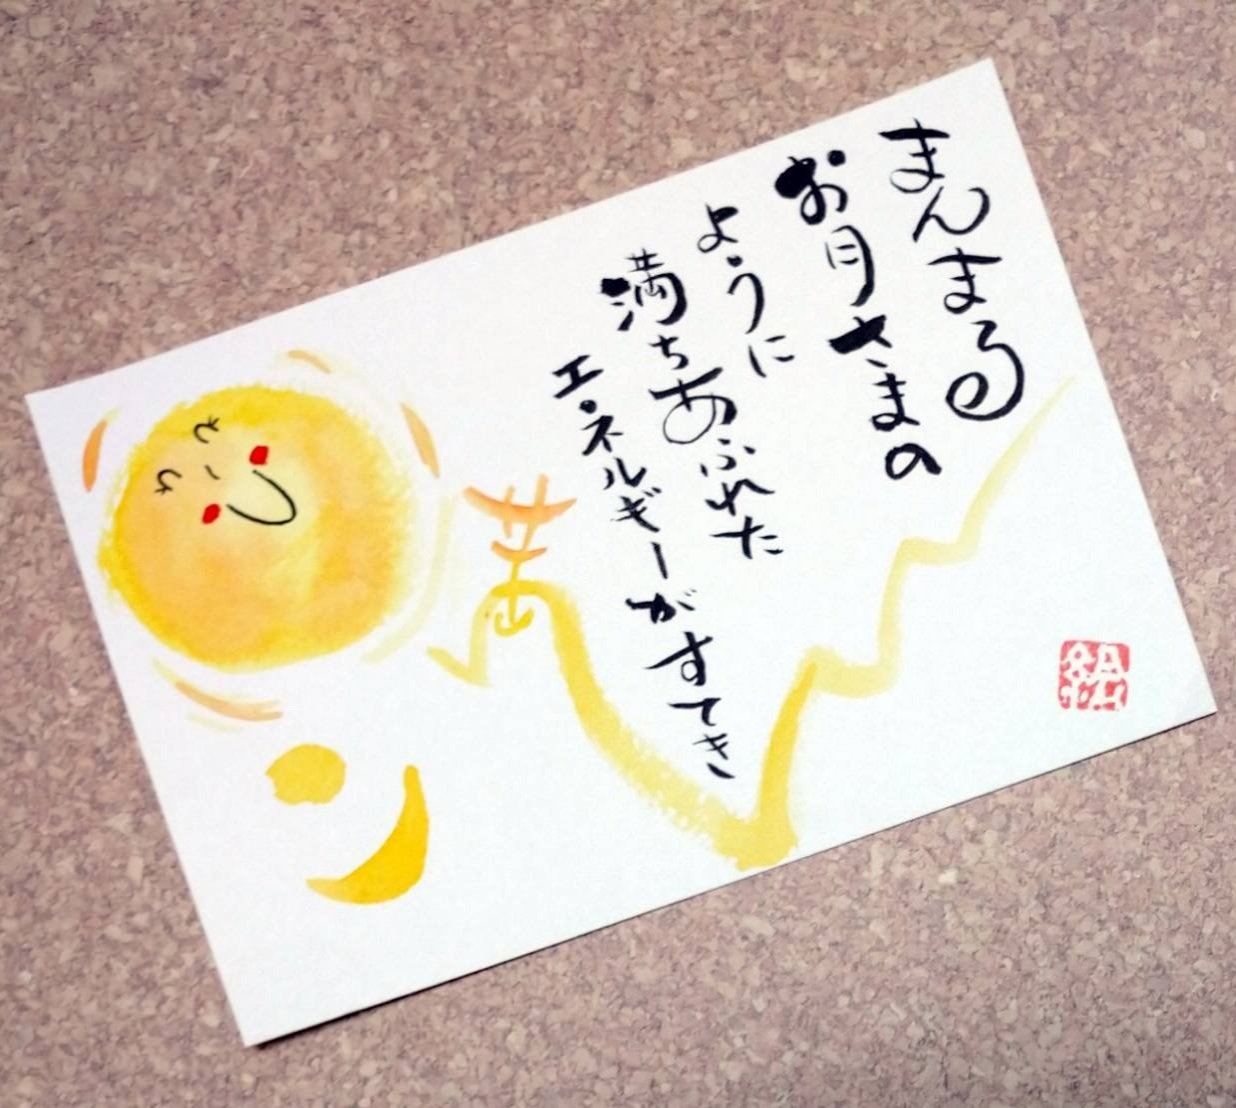 まんまる
お月さまの
ように
満ちあふれた
エネルギーがすてき